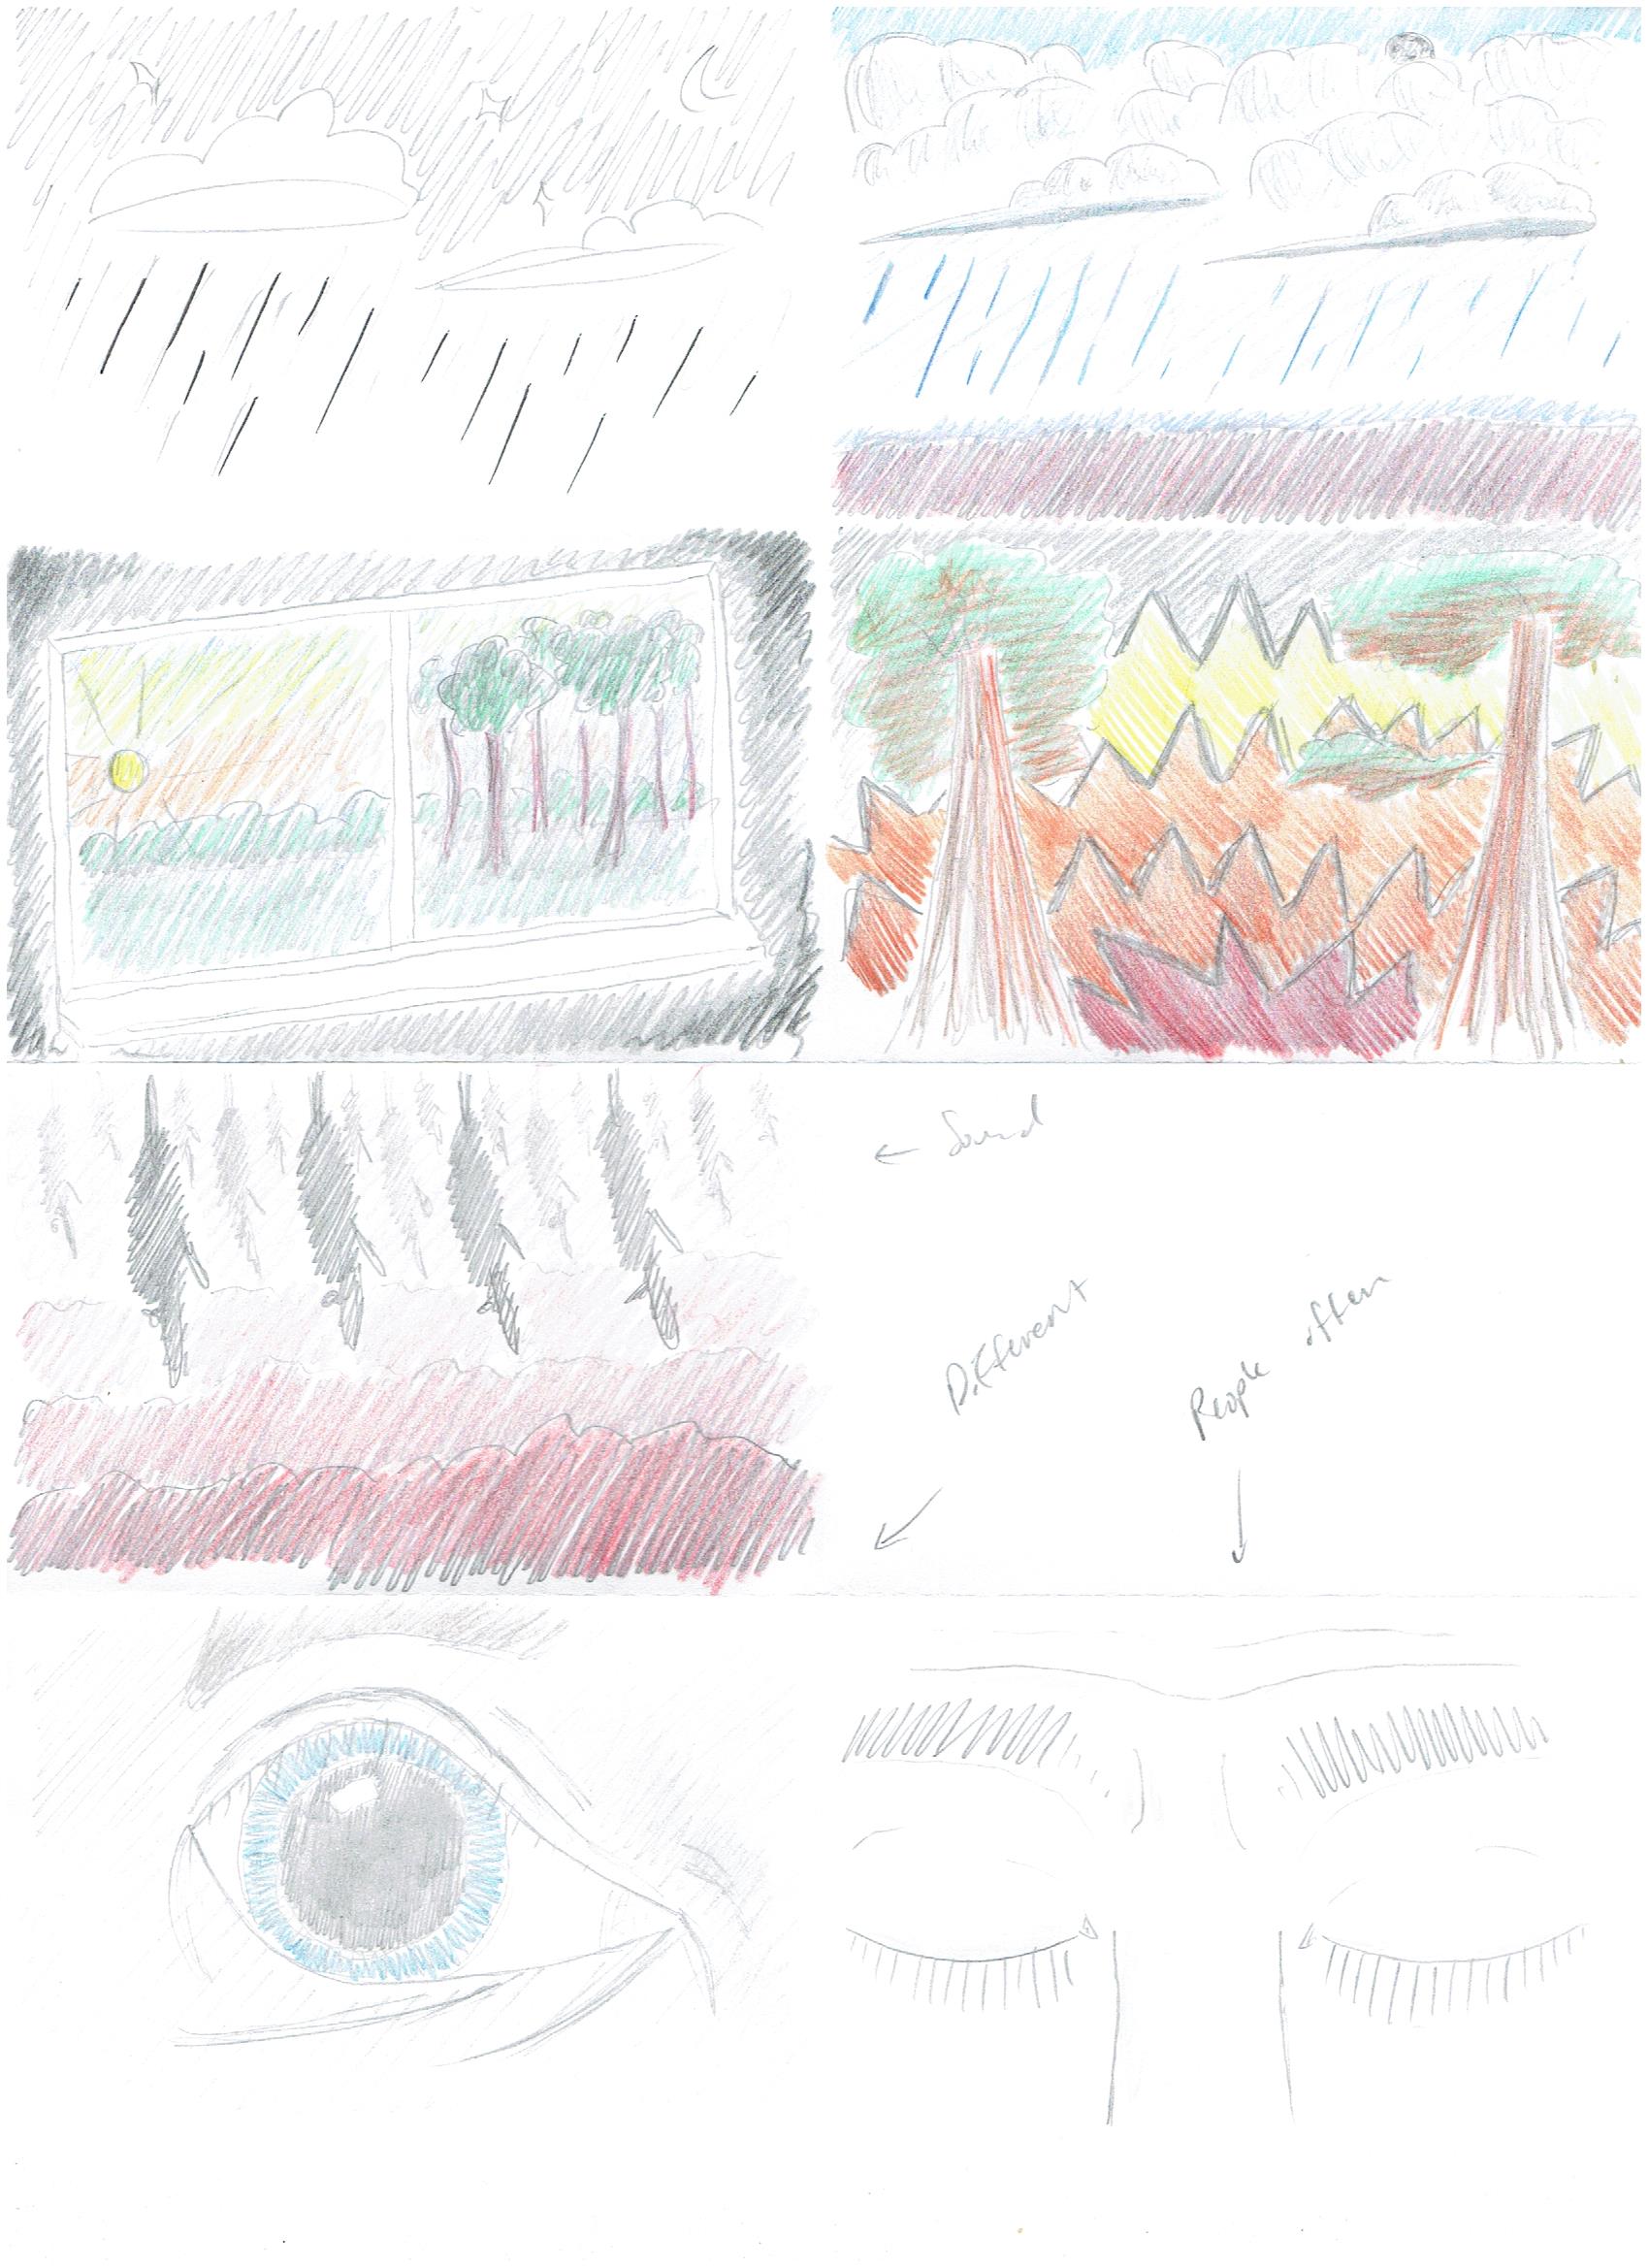 ← Sound
Different
People often